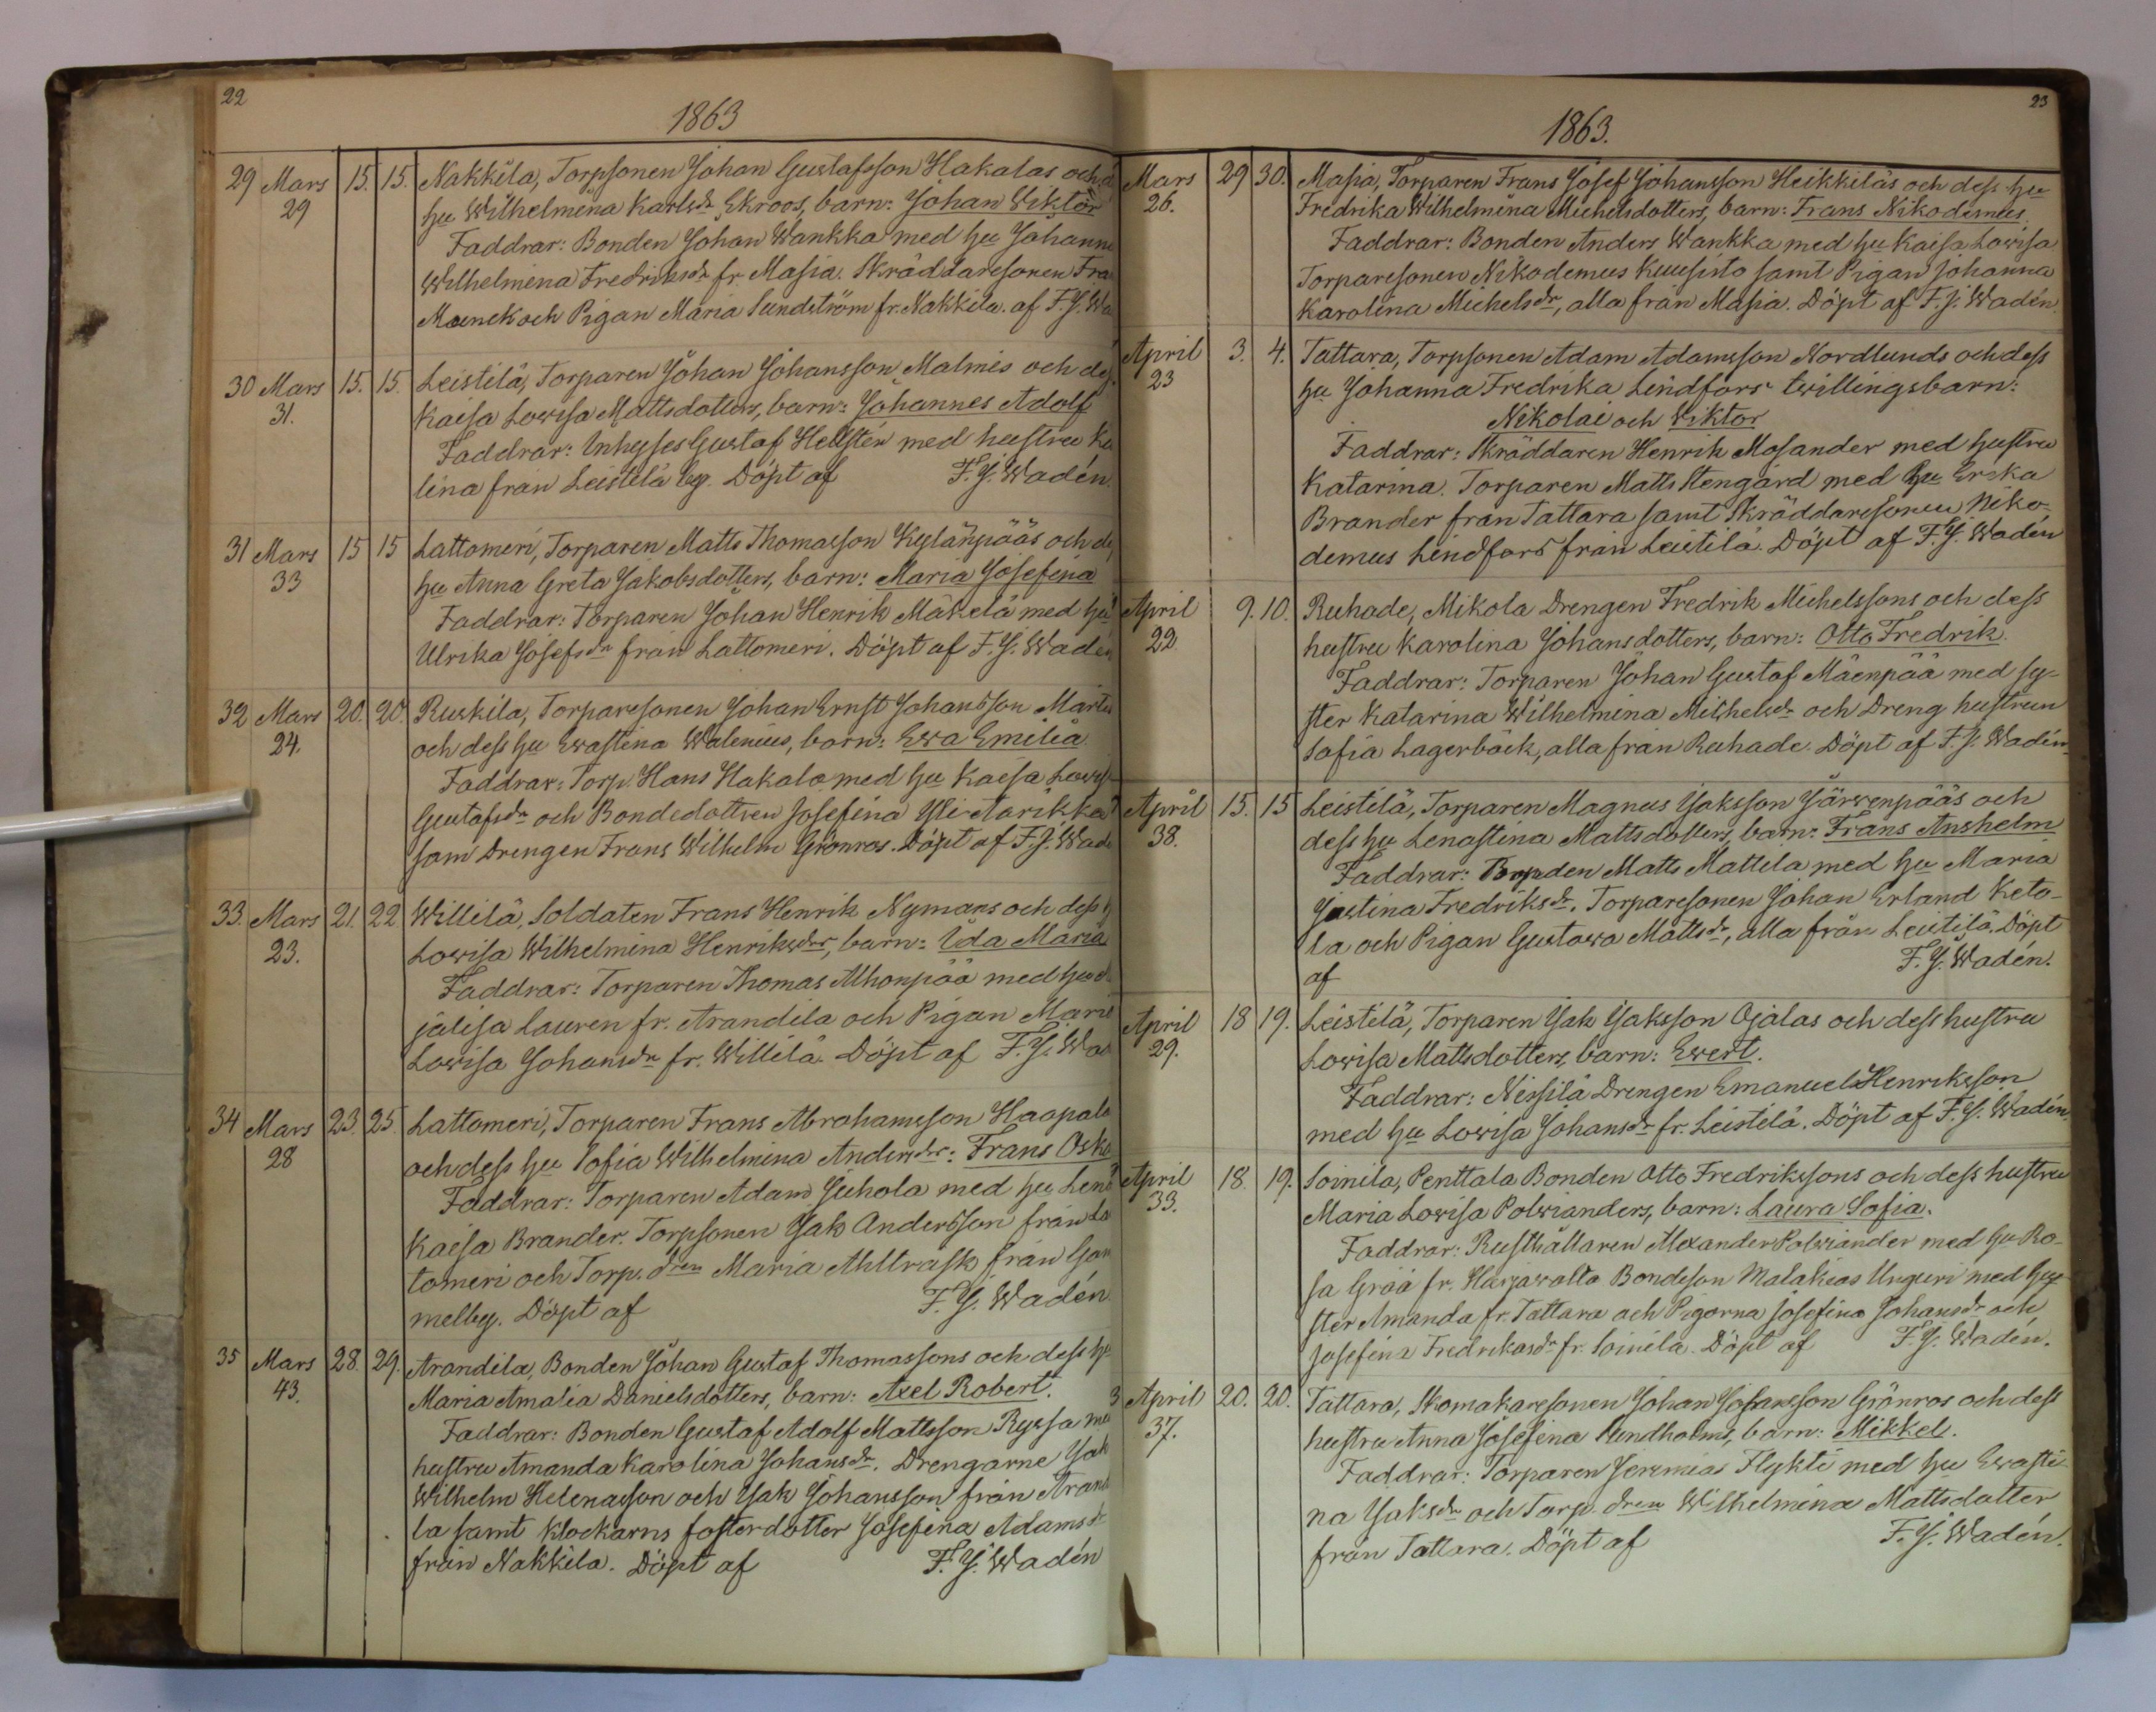 22
1863
29 Mars 15. 15. Nakkila, Torpsonen Johan Gustafsson Hakalas och
29 hu Wilhelmina Karlsdr Ekroos, barn: Johan Wiktor
Faddrar: Bonden Johan Wankka med hu Johanna
Wilhelmina Fredriksdr fr. Masia. Skräddaresonen Fra
Moenck och Pigan Maria Sundström fr. Nakkila. af F.J. Wa
30 Mars 15. 15. Leistilä, Torparen Johan Johansson Malmis och
31. Kaisa Lowisa Mattsdotters, barn: Johannes Adolf
Faddrar: Inhyses Gustaf Hellstén med hustru Ka
lina från Leistilä by. Döpt af F.J. Wadén.
31 Mars 15 15 Lattomeri, Torparen Matts Thomasson Kylänpääs och
33 hu Anna Greta Jakobsdotters, barn: Maria Josefina
Faddrar: Torparen Johan Henrik Mäkelä med hu
Ulrika Josefsdr från Lattomeri. Döpt af F.J. Wadén
32 Mars 20. 20. Ruskila, Torparesonen Johan Ernst Johansson
24. och dess hu Ewastina Walenius, barn: Ewa Emilia
Faddrar: Torp. Hans Hakala med hu Kaisa Lowis
Gustafsdr och Bondedottren Josefina Yli-Aarikka
sam Drengen Frans Wilhelm Grönros. Döpt af F.J. Wade
33. Mars 21. 22. Willilä, Soldaten Frans Henrik Nymans och dess
23. Lowisa Wilhelmina Henriksdrs, barn: Ida Maria
Faddrar: Torparen Thomas Alhonpää med hu
jalisa Lauren fr. Arandila och Pigan Maria
Lowisa Johansdr fr. Willilä. Döpt af F.J. Wad
34 Mars 23. 25. Lattomeri, Torparen Frans Abrahamsson Haapala
28 och dess hu Sofia Wilhelmina Andersdrs: Frans Oska
Faddrar: Torparen Adam Juhola med hu Lena
Kaisa Brander. Torpsonen Isak Andersson från La
tomeri och Torp. dren Maria Ahlträsk från Gam
melby. Döpt af F.J. Wadén
35 Mars 28. 29. Arandila, Bonden Johan Gustaf Thomassons och dess hu
43. Maria Amalia Danielsdotters, barn: Axel Robert.
Faddrar: Bonden Gustaf Adolf Mattsson Ryssa me
hustru Amanda Karolina Johansdr. Drengarne Isak
Wilhelm Helenasson och Isak Johansson från Arand
la samt Klockarns fosterdotter Josefina Adamsdr
från Nakkila. Döpt af F.J. Wadén
23
1863.
Mars 29 30. Masia, Torparen Frans Josef Johansson Heikkiläs och dess hu
26. Fredrika Wilhelmina Michelsdotters, barn: Frans Nikodemus.
Faddrar: Bonden Anders Wankka med hu Kaisa Lowisa
Torparesonen Nikodemus Kuusisto samt Pigan Johanna
Karolina Michelsdr, alla från Masia. Döpt af F.J. Wadén.
April 3. 4. Tattara, Torpsonen Adam Adamsson Nordlunds och dess
23 hu Johanna Fredrika Lindfors twillingsbarn:
Nikolai och Wiktor
Faddrar: Skräddaren Henrik Mosander med hustru
Katarina. Torparen Matts Stengård med hu Erika
Brander från Tattara samt Skräddaresonen Niko-
demus Lindfors från Leistilä. Döpt af F.J. Wadén
April 9. 10. Ruhade, Mikola Drengen Fredrik Michelssons och dess
22. hustru Karolina Johansdotters, barn: Otto Fredrik.
Faddrar: Torparen Johan Gustaf Mäenpää med sy-
ster Katarina Wilhelmina Michelsdr och Dreng hustrun
Sofia Lagerbäck, alla från Ruhade. Döpt af F.J. Wadén
April 15. 15 Leistilä, Torparen Magnus Isaksson Järwenpääs och
38. dess hu Lenastina Mattsdotters, barn: Frans Anshelm
Faddrar: Matts Mattila med hu Maria
Justina Fredriksdr. Torparesonen Johan Erland Keto-
la och Pigan Gustawa Mattsdr, alla från Leistilä. Döpt
af F.J. Wadén.
April 18 19. Leistilä, Torparen Isak Isaksson Ojalas och dess hustru
29. Lowisa Mattsdotters, barn: Ewert.
Faddrar: Nissilä Drengen Emanuel Henriksson
med hu Lowisa Johansdr fr. Leistilä. Döpt af F.J. Wadén.
April 18. 19. Soinila, Penttala Bonden Otto Fredrikssons och dess hustru
33. Maria Lowisa Polwianders, barn: Laura Sofia.
Faddrar: Rusthållaren Alexander Polwiander med hu Ro-
sa Gråå fr. Harjawalta Bondeson Malakias Unguri med sy-
ster Amanda fr. Tattara och Pigorna Josefina Johansdr och
Josefina Fredriksdr fr. Soinila. Döpt af F.J. Wadén.
3 April 20. 20. Tattara, Skomakaresonen Johan Johansson Grönros och dess
37. hustru Anna Josefina Lundholms, barn: Mikkel.
Faddrar: Torparen Jeremias Flykti med hu Ewasti-
na Isaksdr och Torp. dren Wilhelmina Mattsdotter
från Tattara. Döpt af F.J. Wadén.